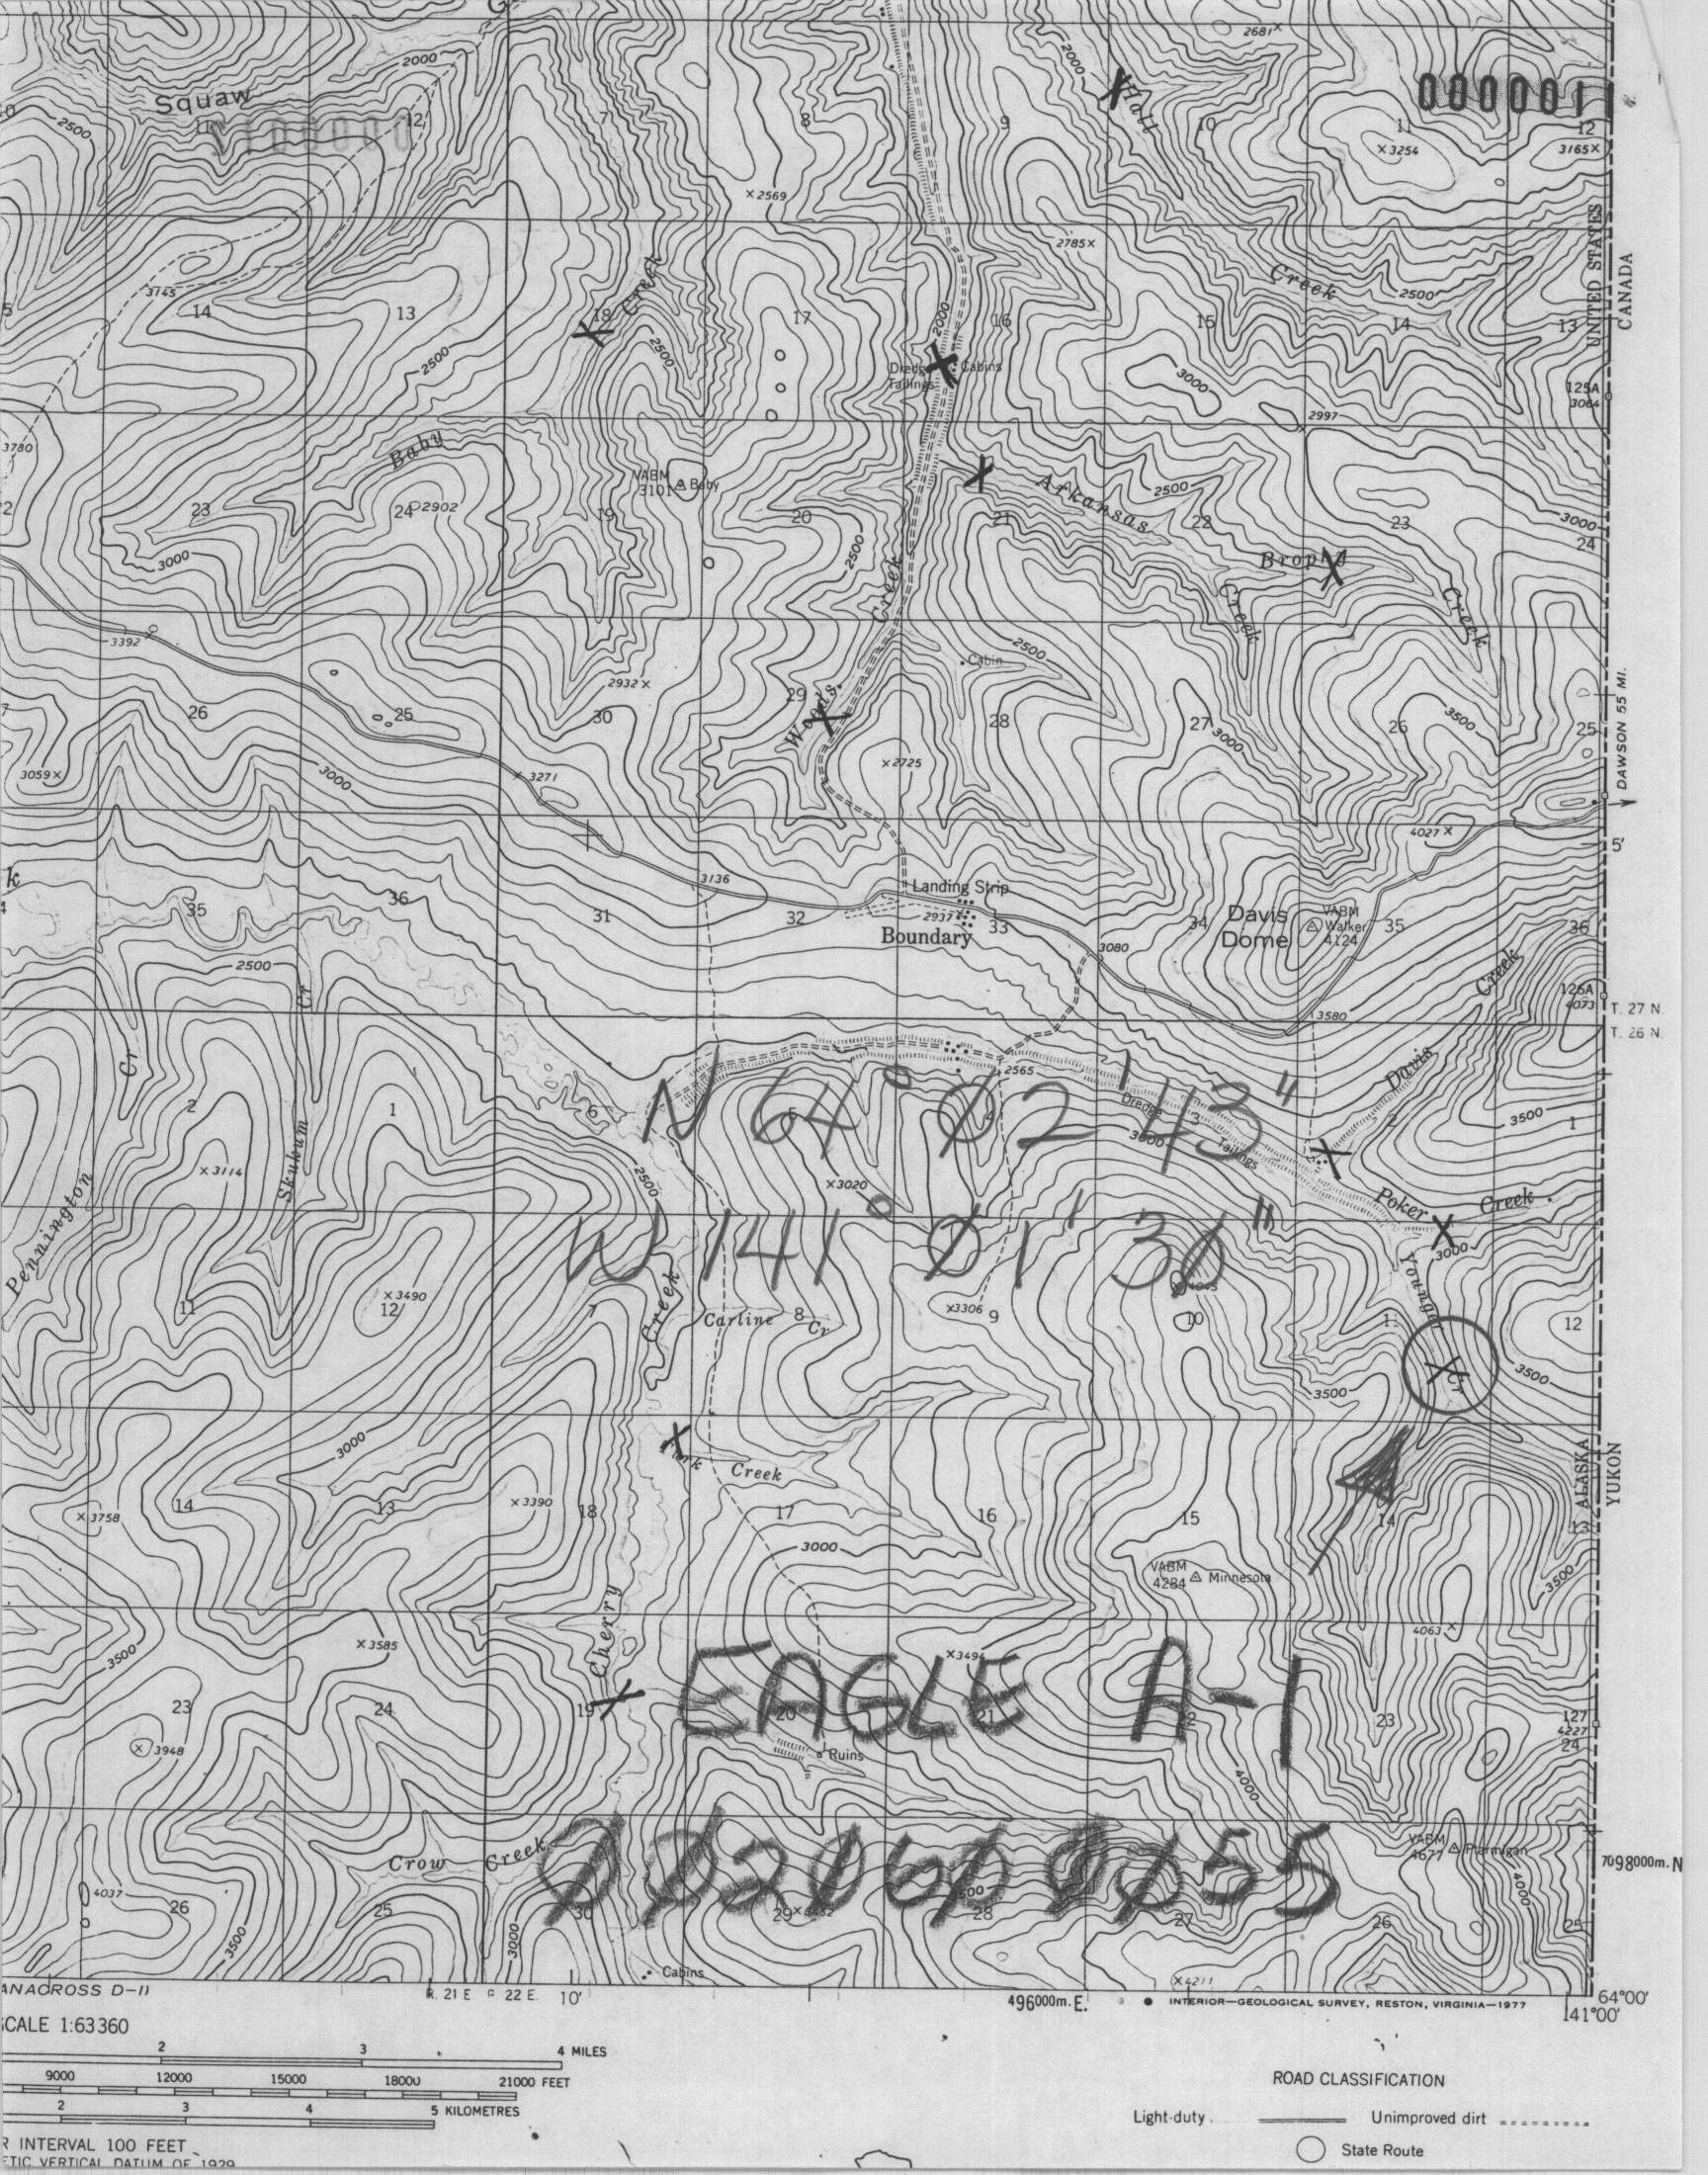 2681
2000
2000
0000011
Squaw
11
12
7
8
9
Hall
10
11
12
2500
3254
3165
2569
UNITED STATES
CANADA
2785
Creek
3745
14
13
18
Creek
17
2000
16
15
2500
14
13
2500
2500
Dredge
Tailings
Cabins
3000
125A
3064
2997
3780
Baby
VABM
3101
Baby
23
24
2902
19
20
2500
21
Arkansas
2500
22
23
3000
24
3000
Brophy
Creek
Creek
Creek
3392
2500
Cabin
2932
26
25
30
29
Woods
28
27
3000
26
3500
25
DAWSON 55 MI.
3059
3000
3271
2725
4027
5'
3136
k
35
36
31
32
Landing Strip
2937
33
Boundary
34
Davis
Dome
VABM
Walker
4124
35
36
3080
2500
Cr
Creek
126A
4073
3580
T. 27 N.
T. 26 N.
Cr
2565
Davis
2
1
6
N 64° 02' 43"
5
4
Dredge
Tailings
3
3000
2
3500
1
Skukum
3114
2500
3020
Pennington
Poker Creek
W 141° 01' 30"
3000
Younger
Cr
3490
11
12
7
Creek
Carline Cr
8
3306
9
10
12
3500
3500
3000
Creek
ALASKA
YUKON
3758
14
13
3390
18
17
16
15
14
13
3000
VABM
4284
Minnesota
3500
3585
Cherry
3500
4063
EAGLE A-1
23
24
19
20
21
23
127
4227
24
3948
Ruins
4000
Crow Creek
0020600055
VABM
4677
Ptarmigan
7098000m. N
4037
26
25
30
29
28
27
26
25
3500
3000
4000
Cabins
4211
ANACROSS D-11
R. 21 E. R 22 E.
10'
496000m. E.
INTERIOR—GEOLOGICAL SURVEY, RESTON, VIRGINIA—1977
64°00'
141°00'
SCALE 1:63360
2 3 4 MILES
9000 12000 15000 18000 21000 FEET
2 3 4 5 KILOMETRES
ROAD CLASSIFICATION
Light-duty
Unimproved dirt
State Route
R INTERVAL 100 FEET
ETIC VERTICAL DATUM OF 1929